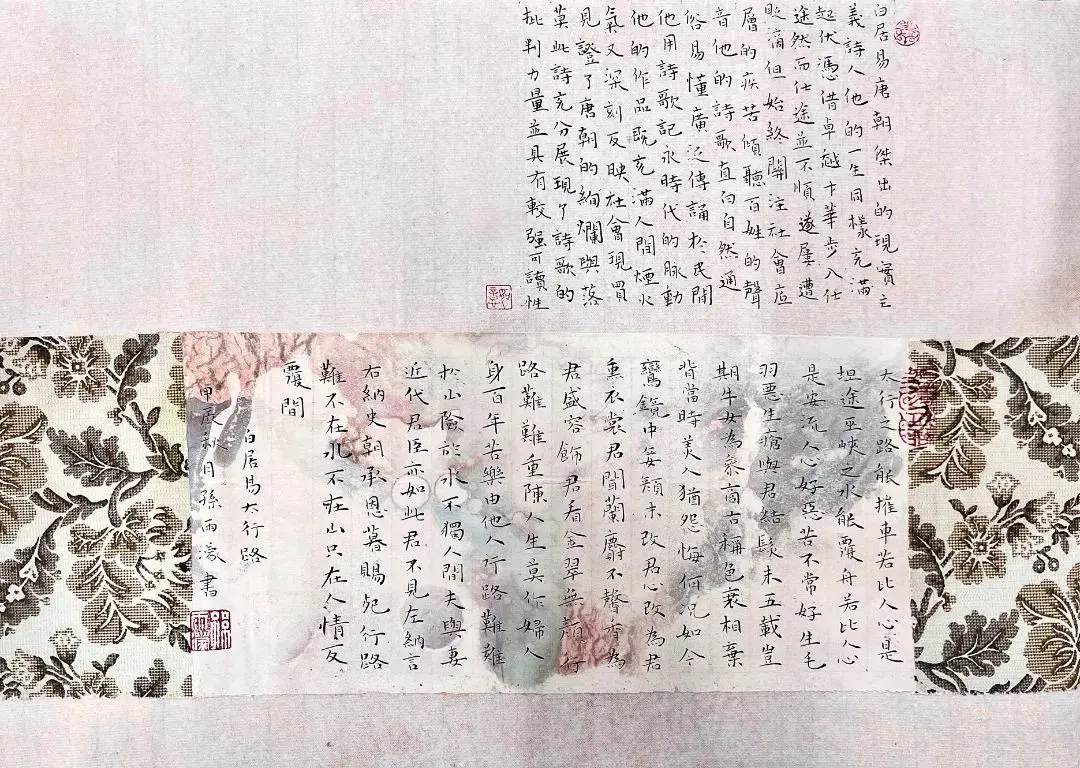 白居易唐朝傑出的現實主
義詩人他的一生同樣充滿
起伏憑借卓越才華步入仕
途然而仕途並不順遂屢遭
貶謫但始終關注社會底
層的疾苦傾聽百姓的聲
音他的詩歌直白自然通
俗易懂廣泛傳誦於民間
他用詩歌記录時代的脉動
他的作品既充滿人間煙火
氣又深刻反映社會現實
見證了唐朝的絢爛與落
寞此詩充分展現了詩歌的
批判力量並具有較强可讀性
太行之路能摧車若比人心是
坦途巫峽之水能覆舟若比人心
是安流人心好惡苦不常好生毛
羽惡生瘡與君結髮未五載豈
期牛女為參商古稱色衰相棄
背當時美人猶怨悔何況如今
鸞鏡中妾顏未改君心改為君
熏衣裳君聞蘭麝不馨香為
君盛容飾君看金翠無顏行
路難難重陳人生莫作婦人
身百年苦樂由他人行路難難
於山險於水不獨人間夫與妻
近代君臣亦如此君不見左納言
右納史朝承恩暮賜死行路
難不在水不在山只在人情反
覆間
白居易太行路
甲辰秋月孫雨濛書